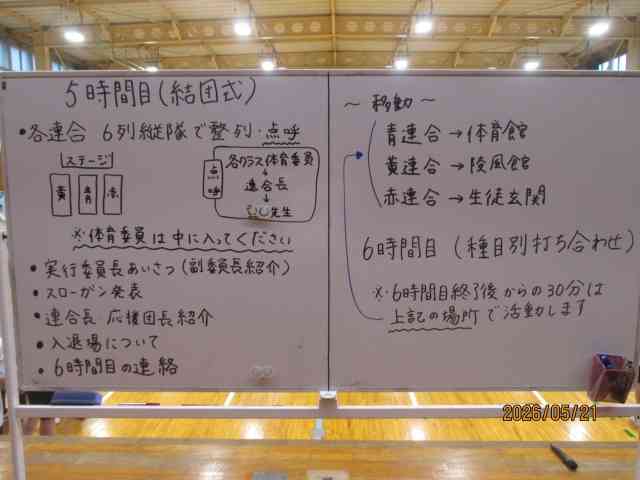 5時間目(結団式)
•各連合 6列縦隊で整列・点呼
ステージ
黄 青 赤
点呼
各クラス体育委員
↓
連合長
↓
先生
※体育委員は中に入ってください
•実行委員長あいさつ(副委員長紹介)
•スローガン発表
•連合長 応援団長紹介
•入退場について
•6時間目の連絡
～移動～
青連合→体育館
黄連合→陵風館
赤連合→生徒玄関
6時間目(種目別打ち合わせ)
※6時間目終了後からの30分は
上記の場所で活動します
2026/05/21